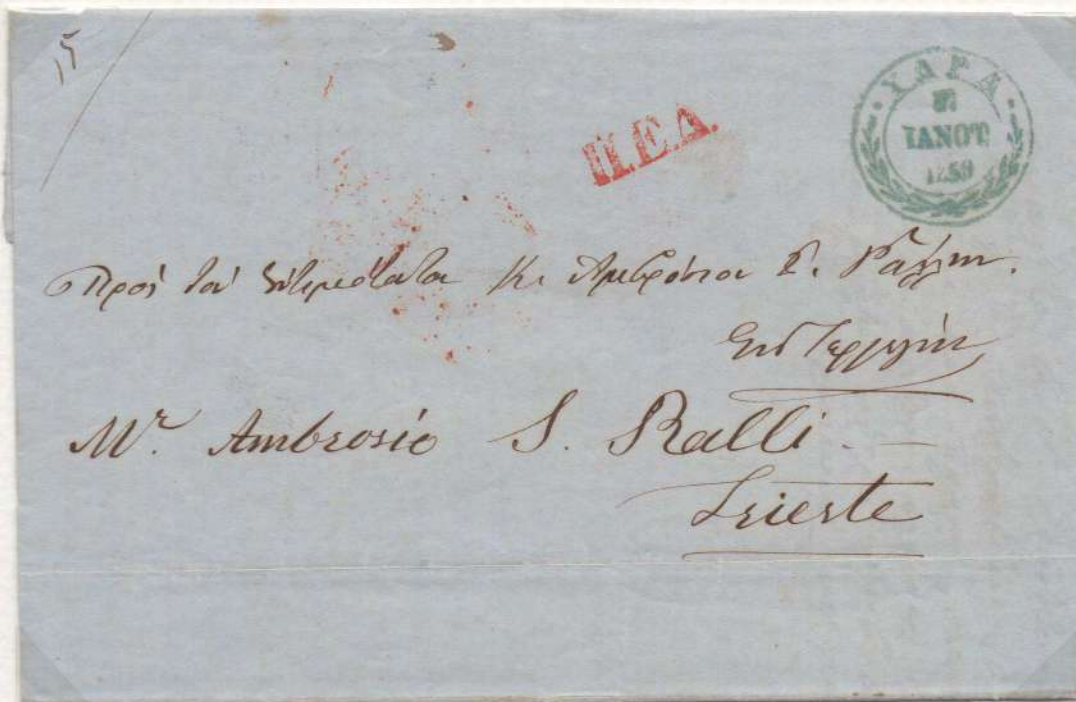 15
Π.Ε.Δ.
ΥΔΡΑ
ΙΑΝΟΥ
1859
Πρὸς τὸν Κν Ἀμβρόσιον Σ. Ῥάλλην.
Εἰς Τεργέστην
Mr. Ambrosio S. Ralli
Trieste